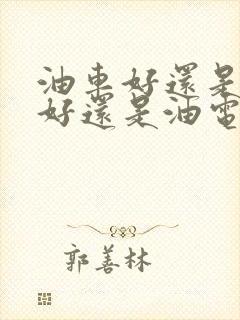 油車好還是
好還是油電
郭善林